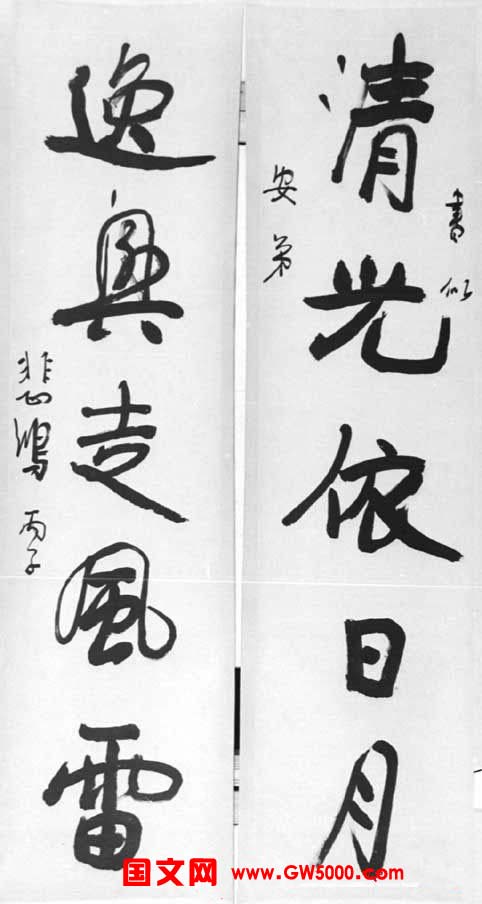 清光依日月
書似
安弟
逸興走風雷
悲鴻 丙子
国文网 www.GW5000.com